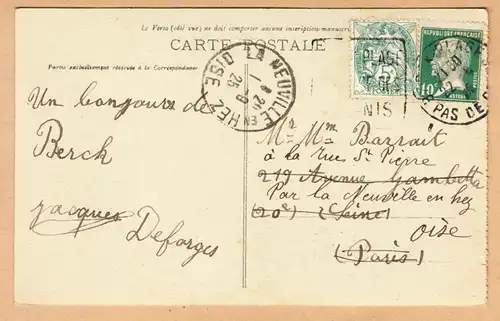 Le Verso (côté vue) ne doit comporter aucune inscription manuscrite
CARTE POSTALE
Partie exclusivement réservée à la Correspondance
LA NEUVILLE
EN HEZ
OISE
20
1-9
25
PLAGE
NIS
5
10
PAS DE
Un bonjour de
Berck
Jacques
Deforges
Mr Mme Bazzait
à la rue St Pierre
219 Avenue Gambetta
Par la Neuville en hez
(20e) (Seine)
Oise
(Paris)